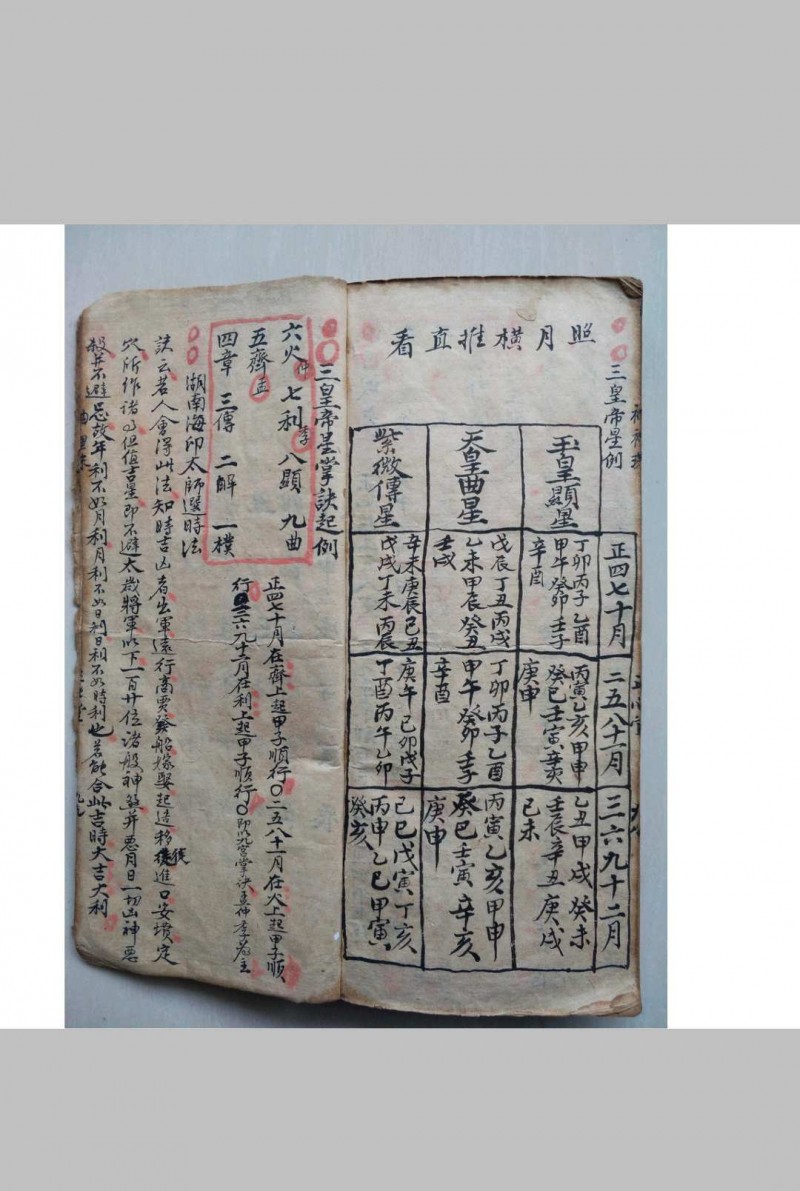 三皇帝星例
照月橫推直看
玉皇顯星
天皇曲星
紫微傳星
正四七十月
丁卯丙子乙酉
甲午癸卯壬子
辛酉
戊辰丁丑丙戌
乙未甲辰癸丑
壬戌
辛未庚辰己丑
戊戌丁未丙辰
二五八十一月
丙寅乙亥甲申
癸巳壬寅辛亥
庚申
丁卯丙子乙酉
甲午癸卯壬子
辛酉
庚午己卯戊子
丁酉丙午乙卯
三六九十二月
乙丑甲戌癸未
壬辰辛丑庚戌
己未
丙寅乙亥甲申
癸巳壬寅辛亥
庚申
己巳戊寅丁亥
丙申乙巳甲寅
癸亥
三皇帝星掌訣起例
六火仲 七利季 八顯 九曲
五齊孟
四章 三傳 二解 一樸
正四七十月在齊上起甲子順行〇二五八十一月在火上起甲子順
行〇三六九十二月在利上起甲子順行〇即以九宮掌訣孟仲季為主
湖南海印太師選時法
訣云若人會得此法知時吉凶者出軍遠行商賈發船嫁娶起造移徙進口安墳定
穴所作諸事但值吉星即不避太歲將軍以下一百廿位諸般神煞并惡月日一切凶神惡
殺并不避忌故年利不如月利月利不如日利日利不如時利也若能合此吉時大吉大利